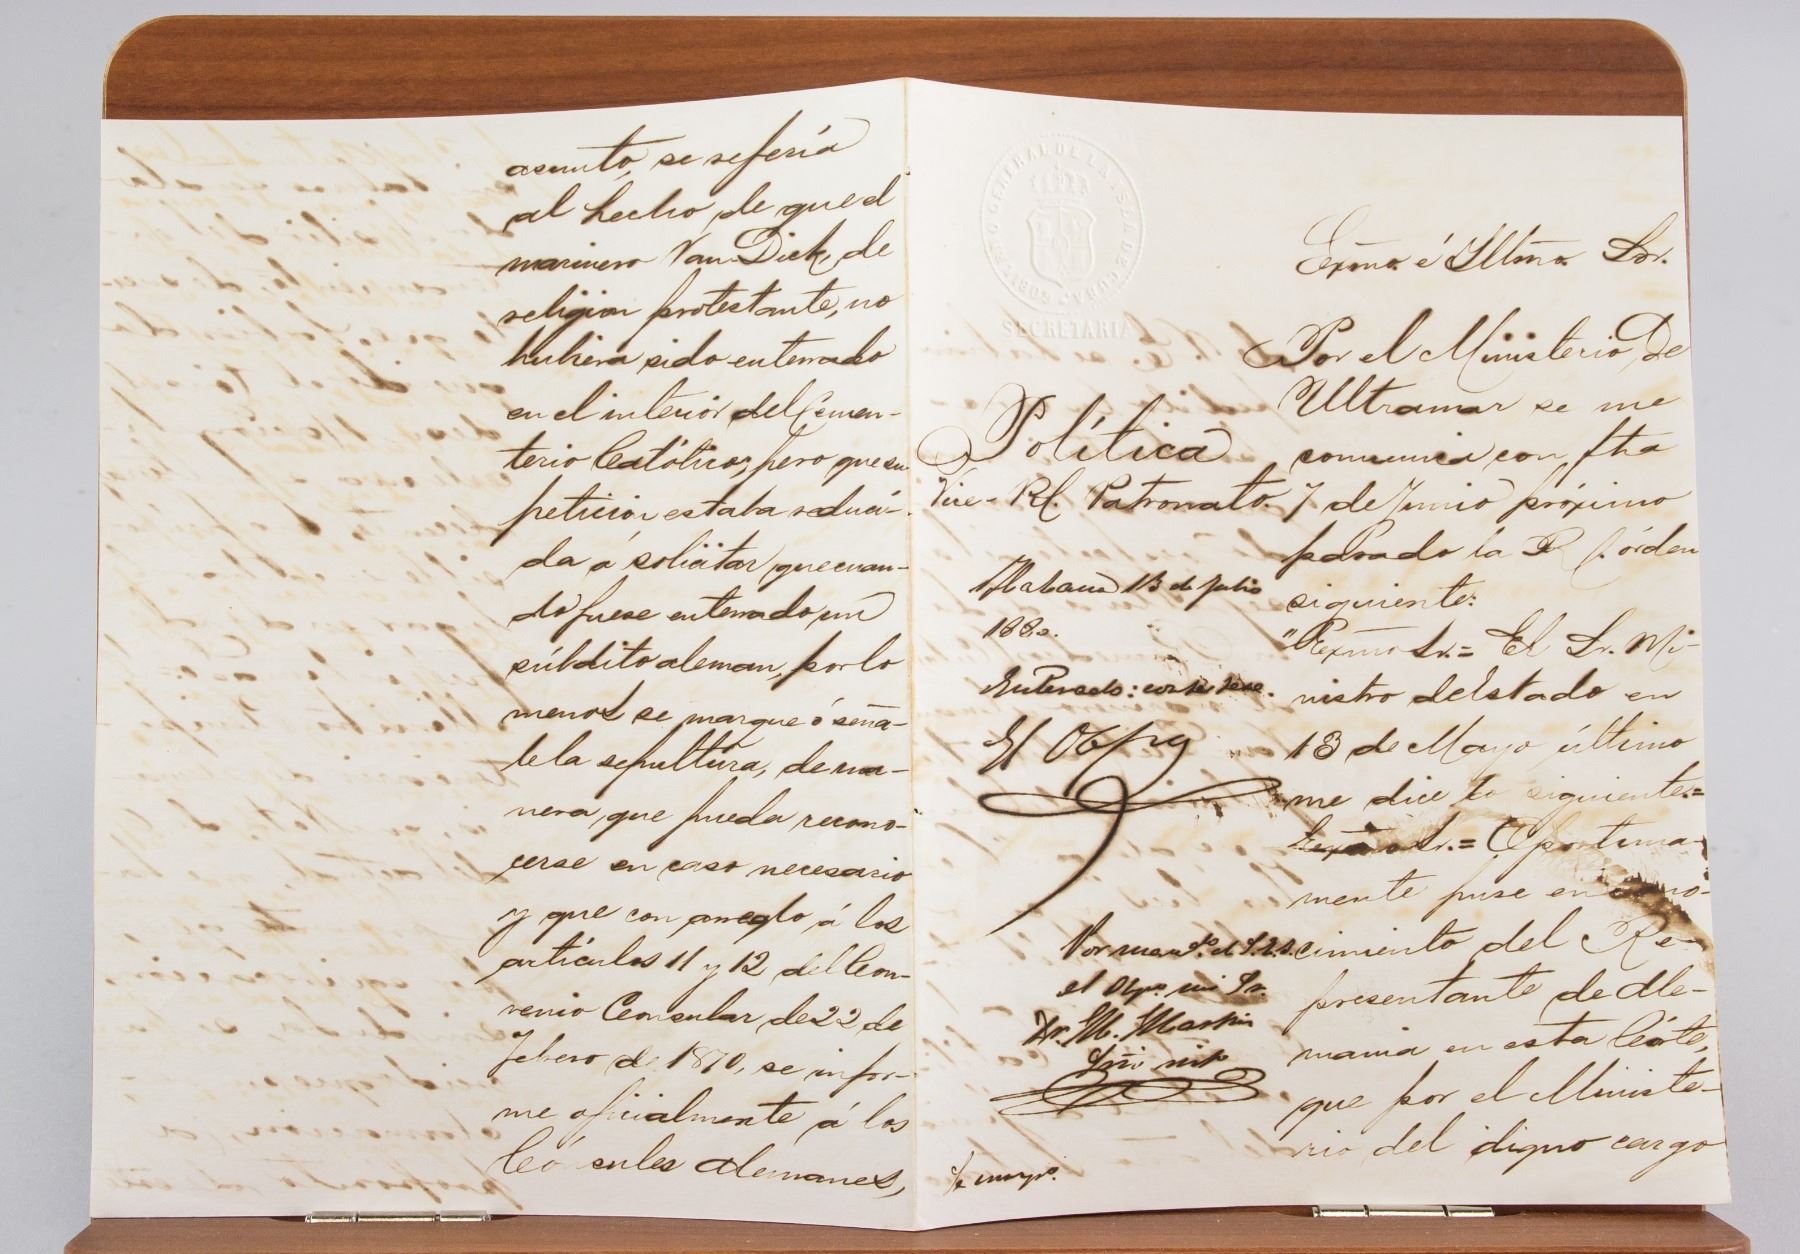 asunto, se referia
al hecho de que el
marinero Van-Dick, de
religion protestante, no
hubiera sido enterrado
en el interior del Cemen-
terio Católico, pero que su
peticion estaba reduci-
da á solicitar que cuan-
do fuese enterrado un
súbdito aleman, por lo
menos se marque ó seña-
le la sepultura, de ma-
nera, que pueda recono-
cerse en caso necesario
y que con arreglo á los
artículos 11 y 12 del Con-
venio Consular de 22 de
Febrero de 1870, se infor-
me oficialmente á los
Cónsules alemanes,
GOBIERNO GENERAL DE LA ISLA DE CUBA
SECRETARIA
Política
Vice-Rl. Patronato.
Habana 13 de Julio
1880.
Enterado:
El Obpo
el Obpo. mi Sr.
Dr.
Srio
Exmo. é Illmo. Sor.
Por el Ministerio de
Ultramar se me
comunica con fha
7 de Junio próximo
pasado la Rl. órden
siguiente:
"Exmo Sr.= El Sr. Mi-
nistro de Estado en
13 de Mayo último
me dice lo siguiente.=
Exmo Sr.= Oportuna-
mente puse en cono-
cimiento del Re-
presentante de Ale-
mania en esta Córte,
que por el Ministe-
rio del digno cargo